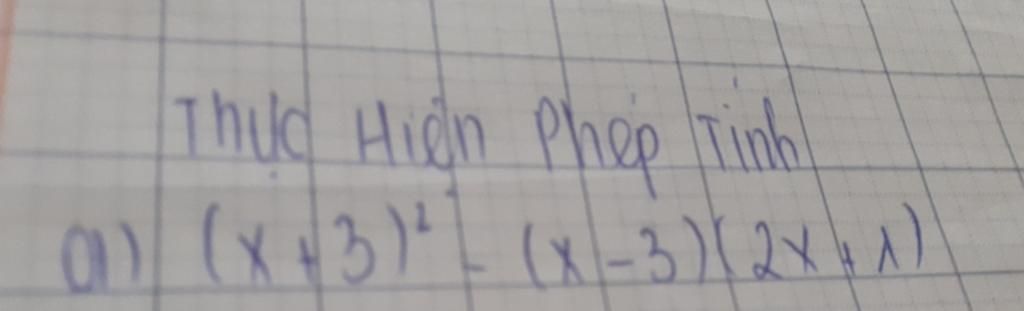 Thực Hiện Phép Tính
a) (x + 3)² - (x - 3)(2x + 1)